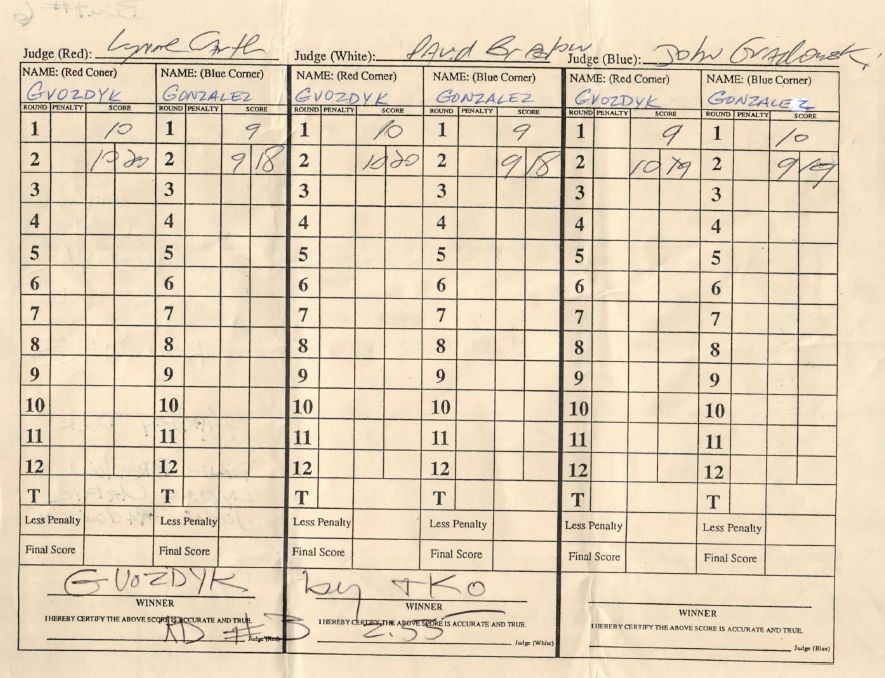 Judge (Red): Lynne Carter Judge (White): David Braslow Judge (Blue): John Gradowski
NAME: (Red Coner) NAME: (Blue Corner) NAME: (Red Corner) NAME: (Blue Corner) NAME: (Red Corner) NAME: (Blue Corner)
GVOZDYK GONZALEZ GVOZDYK GONZALEZ GVOZDYK GONZALEZ
ROUND PENALTY SCORE ROUND PENALTY SCORE ROUND PENALTY SCORE ROUND PENALTY SCORE ROUND PENALTY SCORE ROUND PENALTY SCORE
1 10 1 9 1 10 1 9 1 9 1 10
2 10 20 2 9 18 2 10 20 2 9 18 2 10 19 2 9 19
3 3 3 3 3 3
4 4 4 4 4 4
5 5 5 5 5 5
6 6 6 6 6 6
7 7 7 7 7 7
8 8 8 8 8 8
9 9 9 9 9 9
10 10 10 10 10 10
11 11 11 11 11 11
12 12 12 12 12 12
T T T T T T
Less Penalty Less Penalty Less Penalty Less Penalty Less Penalty Less Penalty
Final Score Final Score Final Score Final Score Final Score Final Score
GVOZDYK by TKO
WINNER WINNER WINNER
I HEREBY CERTIFY THE ABOVE SCORE IS ACCURATE AND TRUE. I HEREBY CERTIFY THE ABOVE SCORE IS ACCURATE AND TRUE. I HEREBY CERTIFY THE ABOVE SCORE IS ACCURATE AND TRUE.
RD #3 2:55
Judge (Red) Judge (White) Judge (Blue)